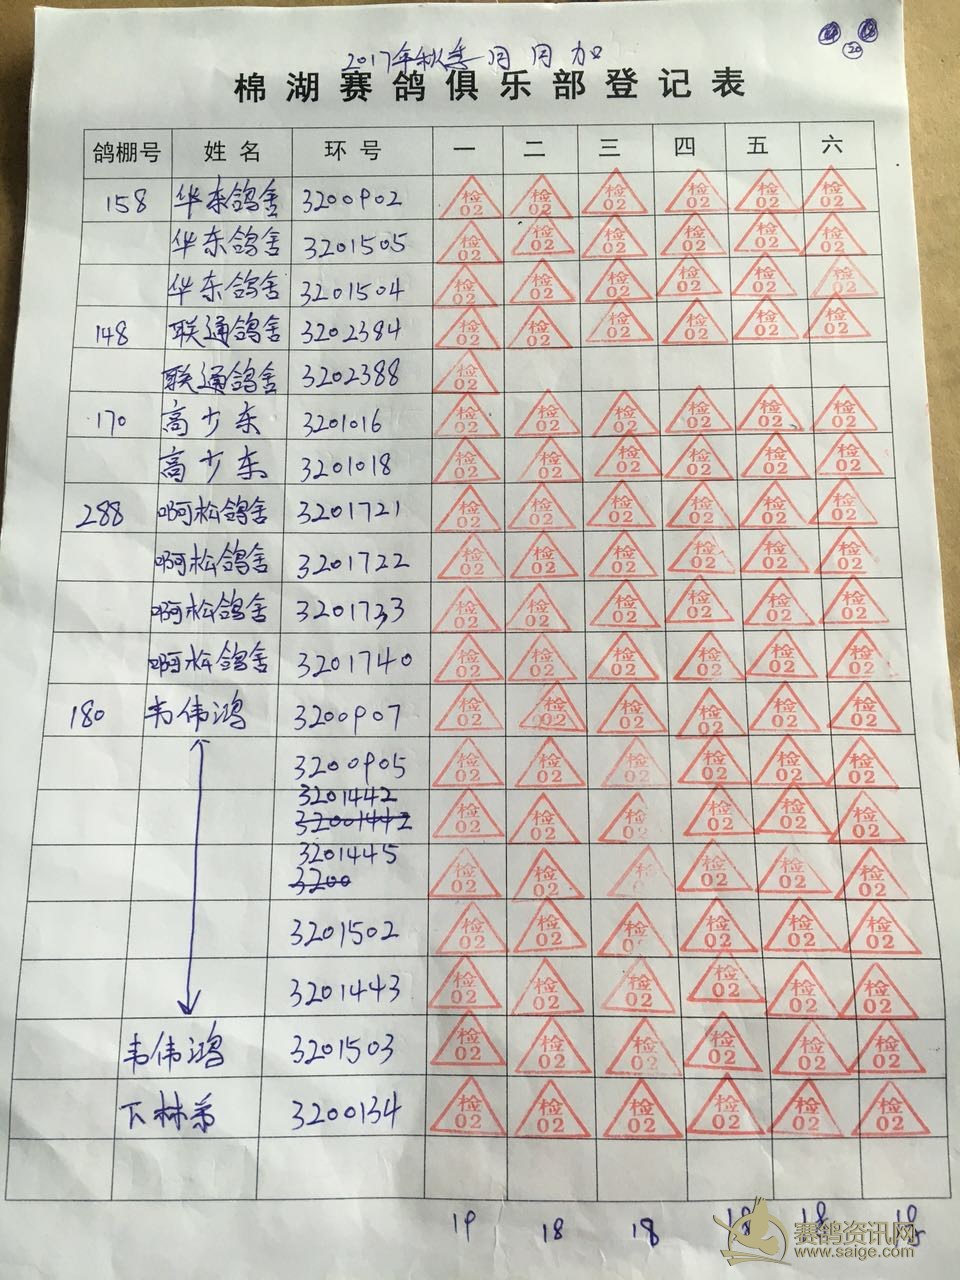 20
2017年秋季 冈 冈 加
棉湖赛鸽俱乐部登记表
鸽棚号 姓名 环号 一 二 三 四 五 六
158 华东鸽舍 3200902 检02 检02 检02 检02 检02 检02
华东鸽舍 3201505 检02 检02 检02 检02 检02 检02
华东鸽舍 3201504 检02 检02 检02 检02 检02 检02
148 联通鸽舍 3202384 检02 检02 检02 检02 检02 检02
联通鸽舍 3202388 检02
170 高少东 3201016 检02 检02 检02 检02 检02 检02
高少东 3201018 检02 检02 检02 检02 检02 检02
288 啊松鸽舍 3201721 检02 检02 检02 检02 检02 检02
啊松鸽舍 3201722 检02 检02 检02 检02 检02 检02
啊松鸽舍 3201733 检02 检02 检02 检02 检02 检02
啊松鸽舍 3201740 检02 检02 检02 检02 检02 检02
180 韦伟鸿 3200907 检02 检02 检02 检02 检02 检02
3200905 检02 检02 检02 检02 检02 检02
3201442
32001442 检02 检02 检02 检02 检02 检02
3201445
3200 检02 检02 检02 检02 检02 检02
3201502 检02 检02 检02 检02 检02 检02
3201443 检02 检02 检02 检02 检02 检02
韦伟鸿 3201503 检02 检02 检02 检02 检02 检02
林弟 3200134 检02 检02 检02 检02 检02 检02
19 18 18 18 18
赛鸽资讯网
www.saige.com